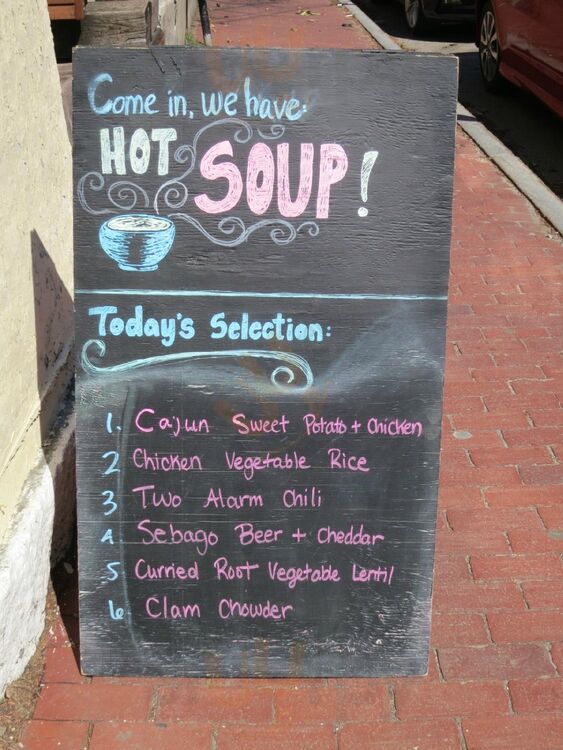 Come in, we have:
HOT SOUP!
Today's Selection:
1. Cajun Sweet Potato + Chicken
2 Chicken Vegetable Rice
3 Two Alarm Chili
4 Sebago Beer + Cheddar
5 Curried Root Vegetable Lentil
6 Clam Chowder